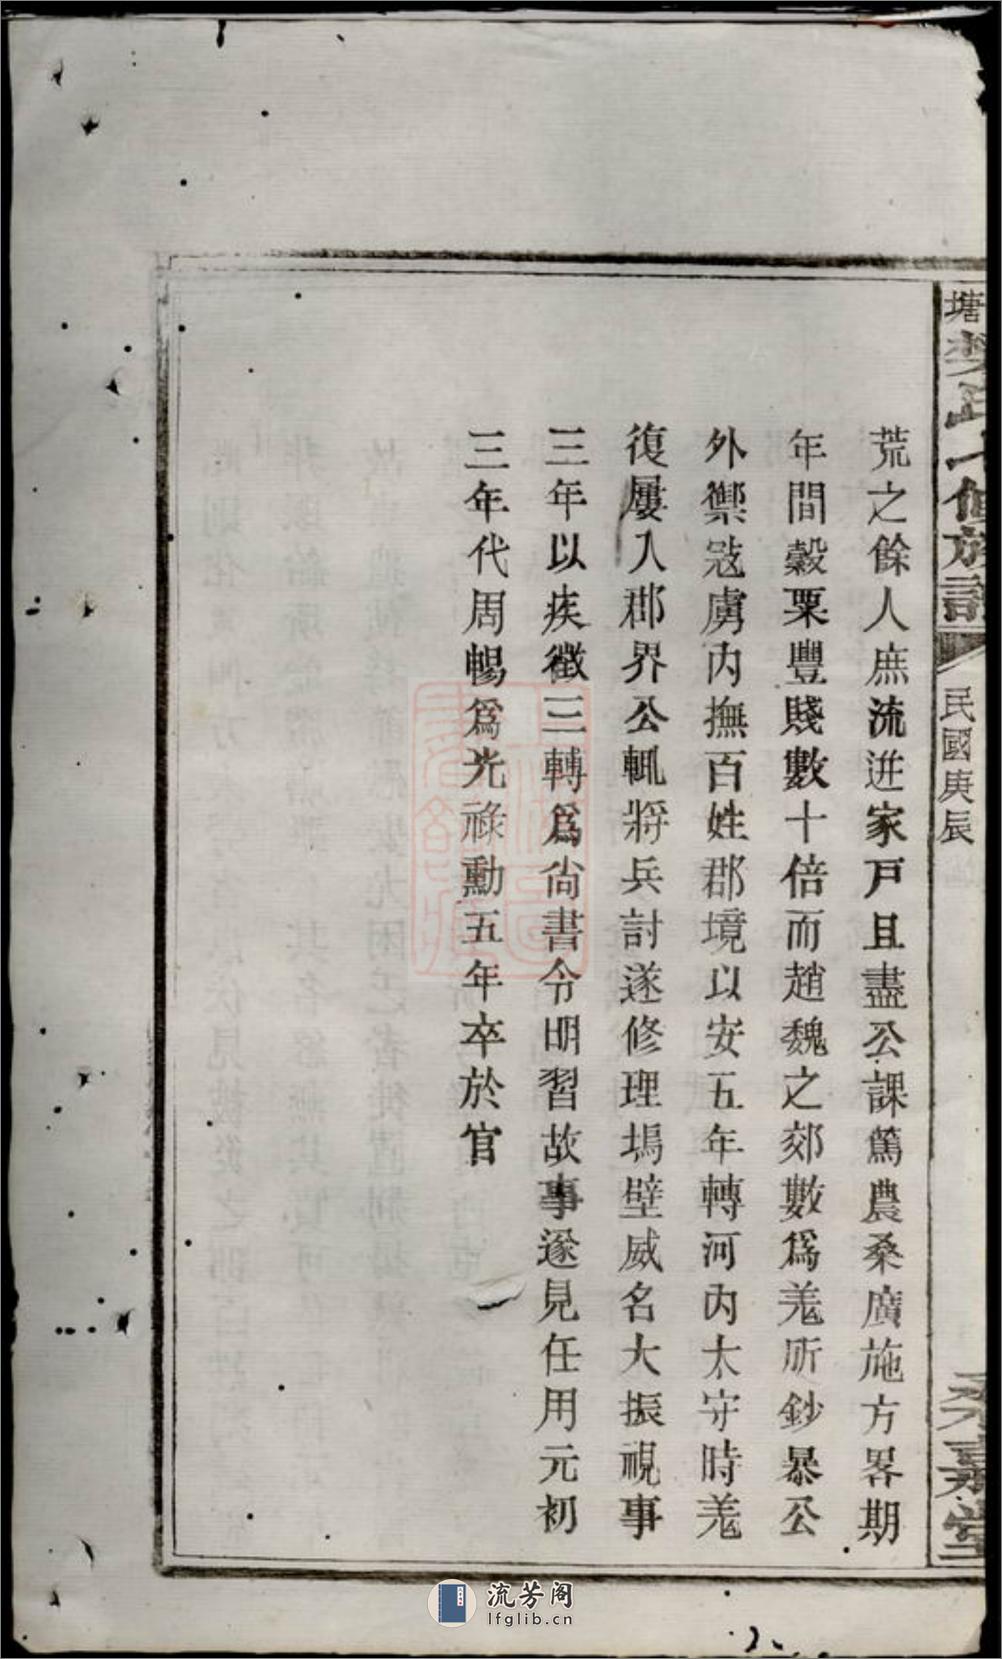 荒之餘人庶流迸家戸且盡公課篤農桑廣施方畧期
年間糓粟豐賤數十倍而趙魏之郊數爲羗所鈔暴公
外禦𡨥虜內撫百姓郡境以安五年轉河內太守時羗
復屢入郡界公輒將兵討逐修理塢壁威名大振視事
三年以疾徵三轉爲尙書令明習故事遂見任用元初
三年代周暢爲光祿勳五年卒於官
塘樊氏 修族譜
民國庚辰
堂
流芳阁
lfglib.cn